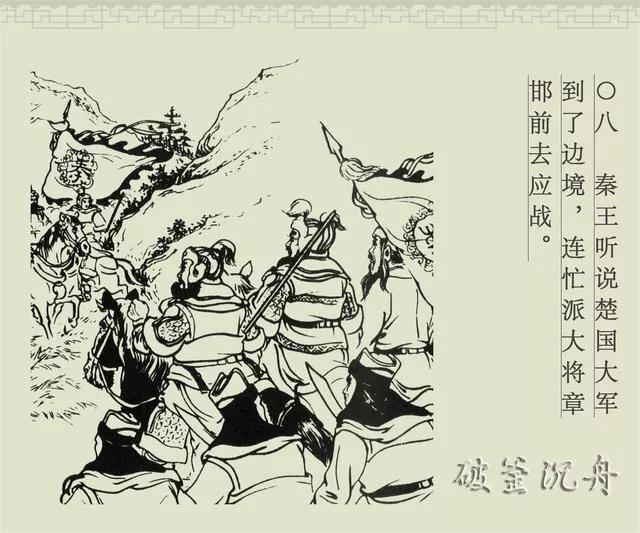 〇八　秦王听说楚国大军
到了边境，连忙派大将章
邯前去应战。
破釜沉舟